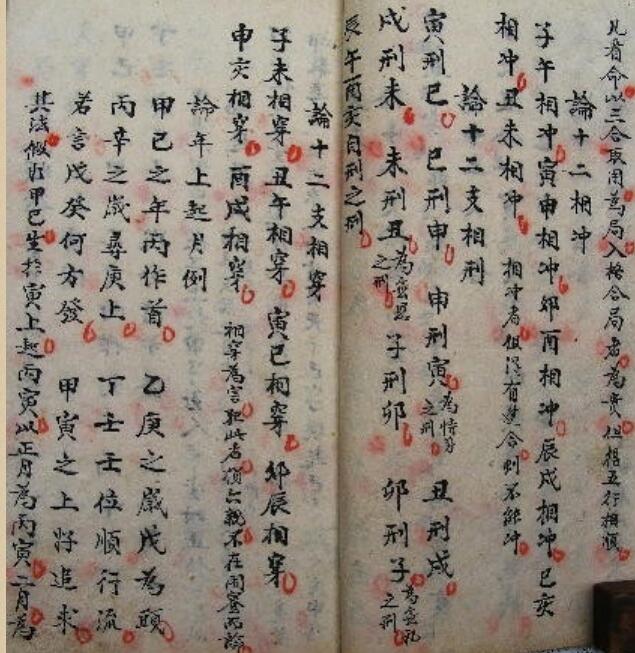 凡看命以三合取用為局入格合局者為貴但搭五行相順
論十二相冲
子午相冲寅申相冲卯酉相冲辰戌相冲巳亥
相冲丑未相冲 相冲者但得有合則不能冲
論十二支相刑
寅刑巳 巳刑申 申刑寅為恃势之刑 丑刑戌
戌刑未 未刑丑為之刑 子刑卯 卯刑子為無礼之刑
辰午酉亥自刑之刑
論十二支相穿
子未相穿 丑午相穿 寅巳相穿 卯辰相穿
申亥相穿 酉戌相穿 相穿為害犯此者損六親不在闲實而論
論年上起月例
甲己之年丙作首 乙庚之歲戊為頭
丙辛之歲尋庚上 丁壬壬位順行流
若言戊癸何方發 甲寅之上好追求
其法假如甲己生於寅上起丙寅以正月為丙寅二月為